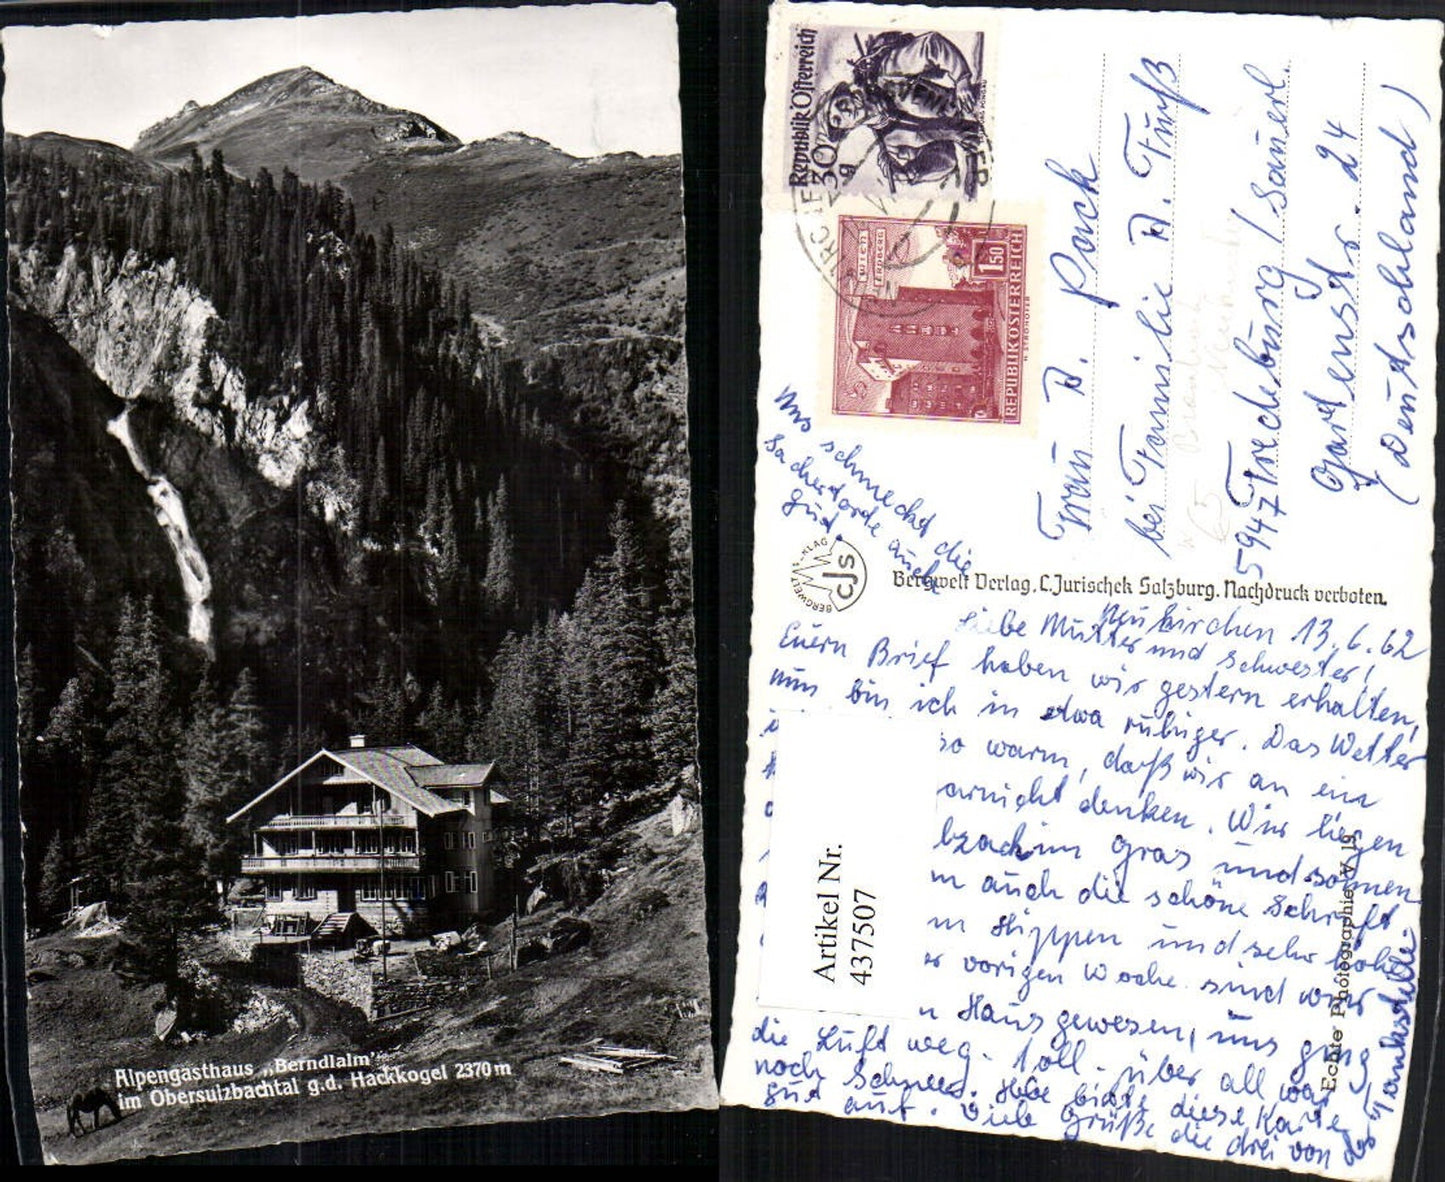 Alpengasthaus „Berndlalm"
im Obersulzbachtal g.d. Hackkogel 2370m
Republik Österreich
30 g
WIEN
ERDBERG
1.50
REPUBLIK ÖSTERREICH
Frau A. Pack
bei Familie A. Fuß
5947 Fredeburg / Sauerl.
Gartenstr. 24
(Deutschland)
Uns schmeckt die
Sachertorte auch
gut.
BERGWELT VERLAG
CJS
Bergwelt Verlag, C. Jurischek Salzburg. Nachdruck verboten.
Neukirchen 13.6.62
Liebe Mutter und Schwester!
Euern Brief haben wir gestern erhalten,
nun bin ich in etwa ruhiger. Das Wetter
so warm, daß wir an ein
arnicht denken. Wir liegen
bzach im Gras und sonnen
m auch die schöne Schrift
m Hippen und sehr
er vorigen Woche sind wir
n Haus gewesen, uns ging
die Luft weg. Toll. Über all war
noch Schnee. Hebe bitte diese Karte
gut auf. Viele Grüße die drei von
der "Tankstelle.
Echte Photographie V 19
Artikel Nr.
437507